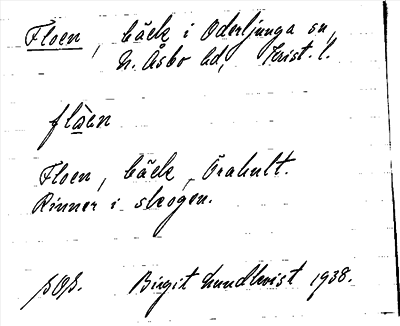 Floen, bäck i Oderljunga sn,
N. Åsbo hd, Krist. l.
floen
Floen, bäck, Örahult.
Rinner i skogen.
Birgit Lundkvist 1938.